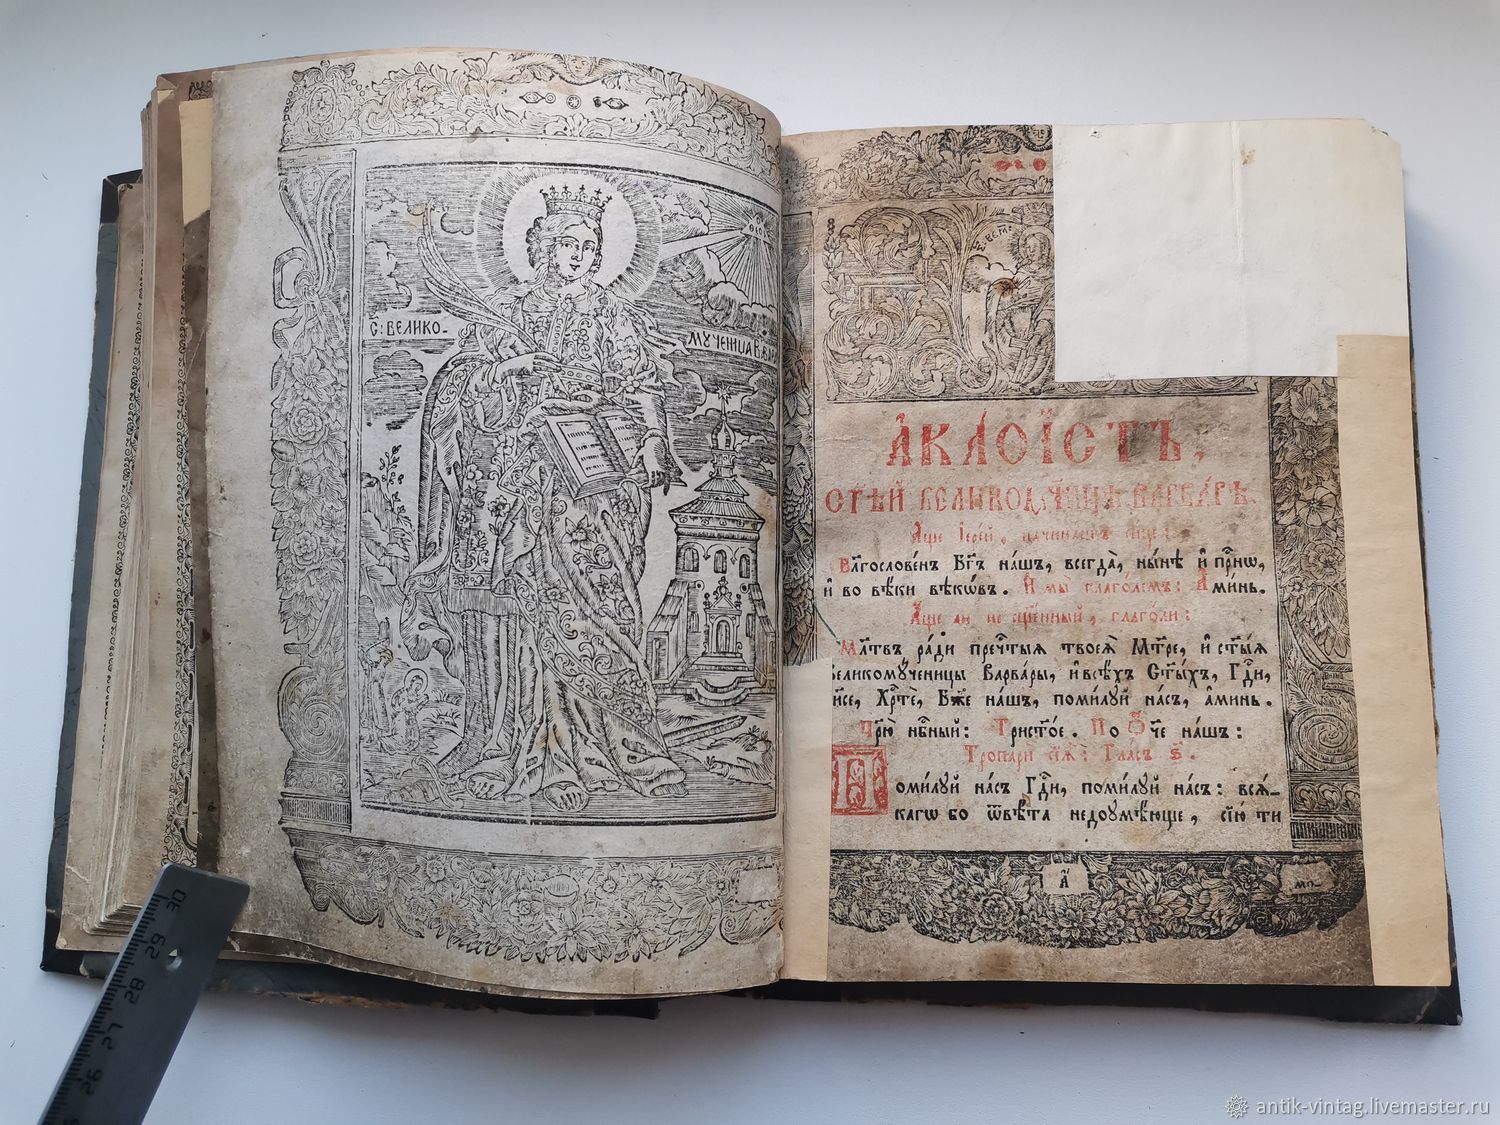 С: ВЕЛИКО-
МУЧЕНИЦА ВАРВ
ѲЕО
А҆КАѲІ́СТЪ,
СТ҃ѢЙ ВЕЛИКОМЧ҃НИЦѢ ВАРВА́РѢ
А҆́ще І҆ере́й, начина́етъ си́це:
Бл҃гослове́нъ Бг҃ъ на́шъ, всегда̀, ны́нѣ и҆ при́снѡ,
и҆ во вѣ́ки вѣкѡ́въ. И҆ мы̀ глаго́лемъ: А҆ми́нь.
А҆́ще ли не сщ҃е́нный, глаго́ли:
Мл҃твъ ра́ди пречⷭ҇тыѧ твоеѧ̀ Мт҃ре, и҆ ст҃ы́ѧ
великомꙋ́ченицы Варва́ры, и҆ всѣ́хъ Ст҃ы́хъ, Гдⷭ҇и,
І҆и҃се, Хрⷭ҇тѐ, Бж҃е на́шъ, поми́лꙋй на́съ, а҆ми́нь.
Цр҃ю̀ нбⷭ҇ный: Трист҃о́е. По Ѻ҆́ч҃е на́шъ:
Тропарѝ сїѧ̑: Гла́съ ѕ҃.
Поми́лꙋй на́съ Гдⷭ҇и, поми́лꙋй на́съ: всѧ́-
кагѡ бо ѿвѣ́та недоꙋмѣ́юще, сїю̀ ти
а҃
мл-
30
29
28
27
26
antik-vintag.livemaster.ru